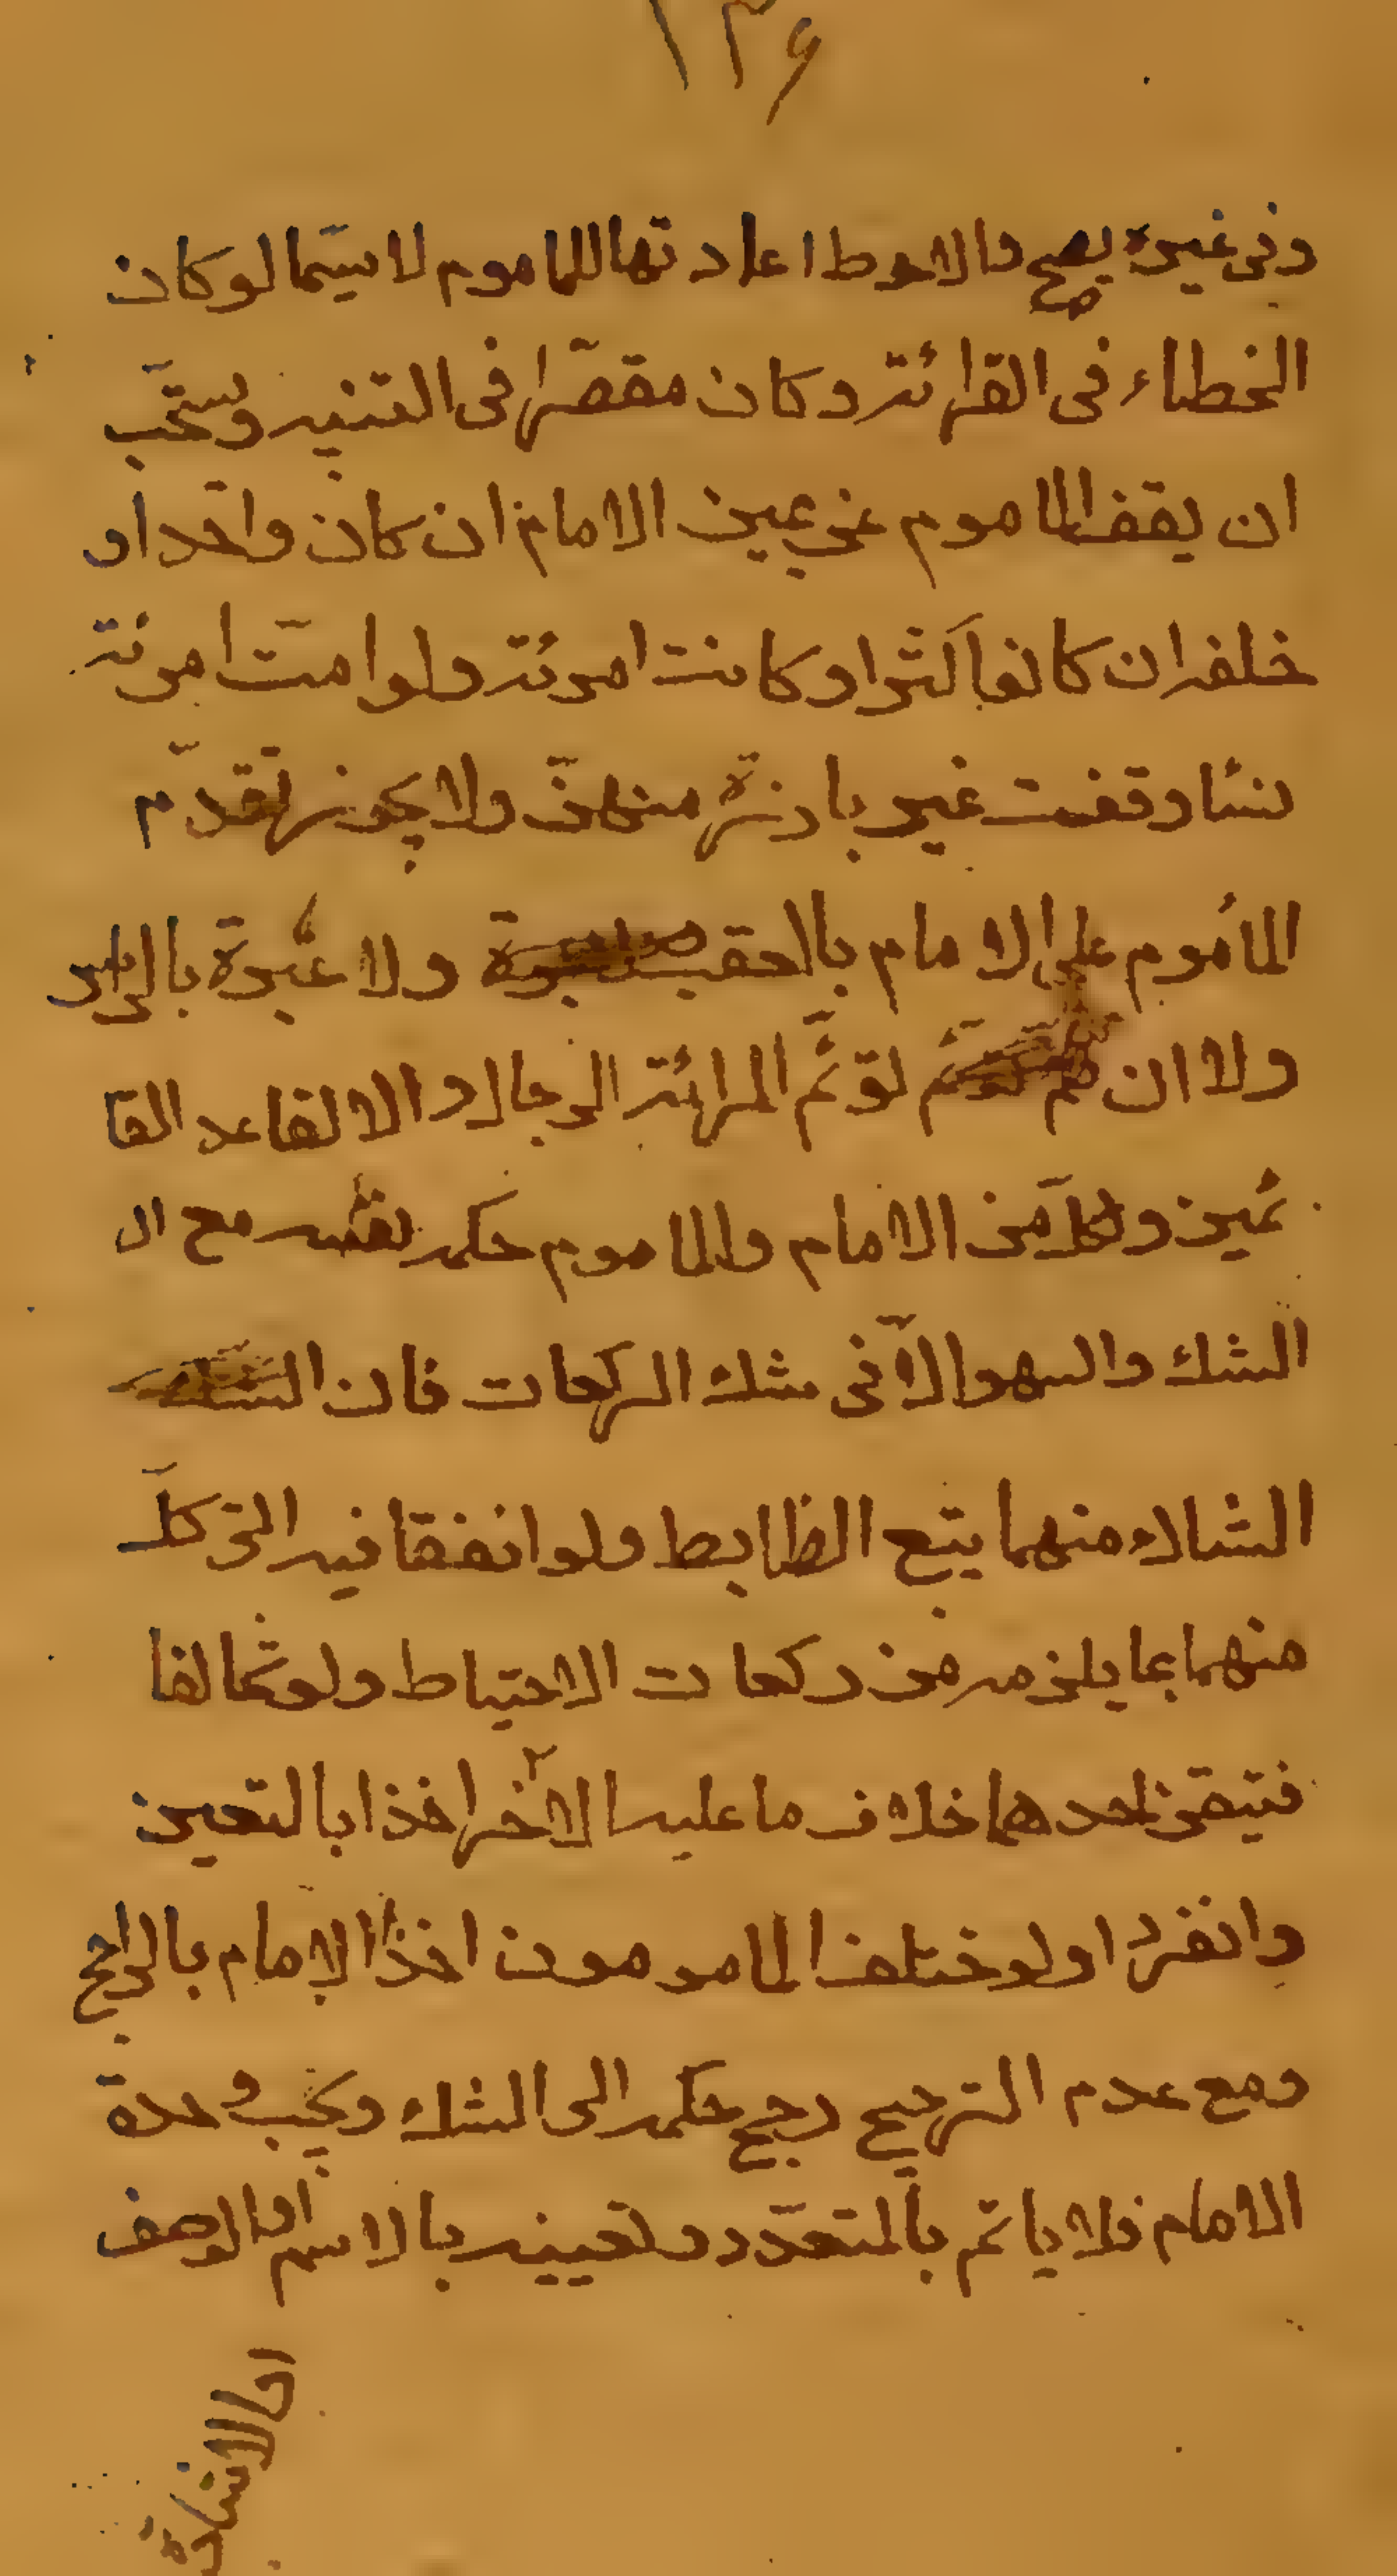 ١٣٤
وفى غيره يصح والاحوط اعادتها للماموم لاسيّما لو كان
الخطاء فى القرائة وكان مقصّرا فى التنبيه ويستحّب
ان يقف الماموم عن يمين الامام ان كان واحدا و
خلفه ان كانوا اكثر او كانت امرئة ولو امّت امرئة
نساء وقفت غير بارزة منهنّ ولا يجوز تقدّم
المأموم على الامام بالعقب ولا عبرة بالراس
ولا ان تؤمّ المرائة الرجال ولا القاعد القا
ئمين ولكلّ من الامام والماموم حكم نفسه مع ال
الشك والسهو الّا فى شك الركعات فان
الشاك منهما يتبع الضابط ولو اتفقا فيه اتى كلّ
منهما بما يلزمه من ركعات الاحتياط ولو تخالفا
فتيقن احدهما خلاف ما عليه الآخر اخذا باليقين
وانفردا ولو ختلف المامومون اخذ الامام بالراجح
ومع عدم الترجيح رجع حكمه الى الشك ويجب وحدة
الامام فلا ياتم بالمتعدّد وتعيينه بالاسم او الوصف
او الاشارة